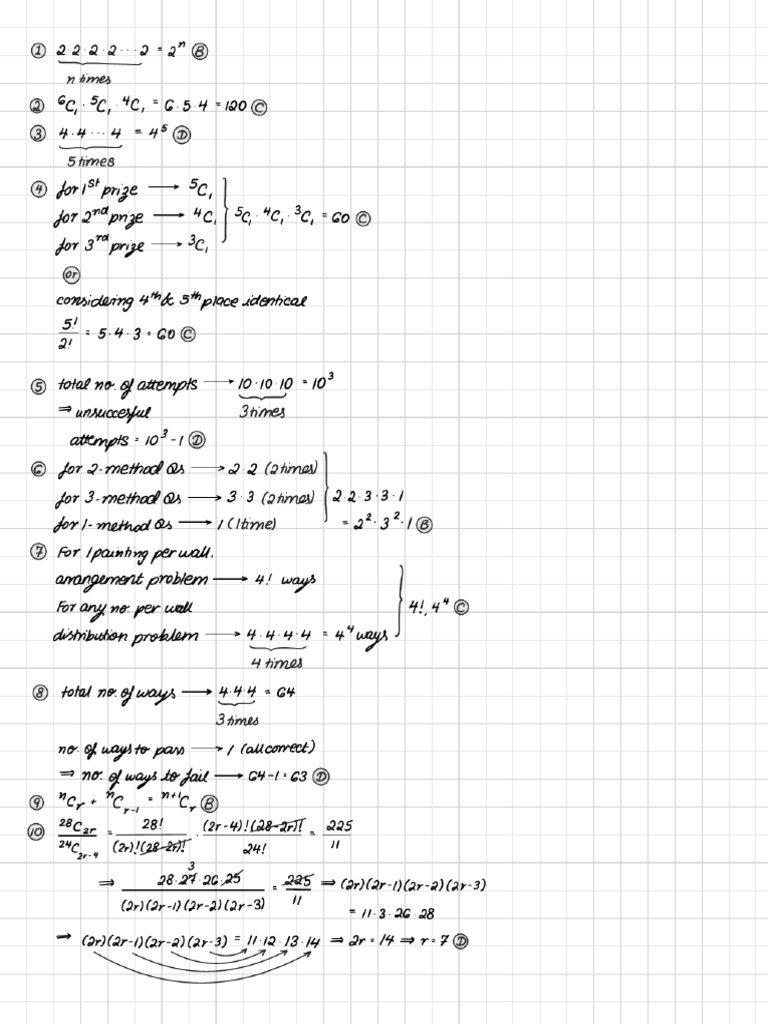 ① 2·2·2·2···2 = 2ⁿ Ⓑ
n times
② ⁶C₁·⁵C₁·⁴C₁ = 6·5·4 = 120 Ⓒ
③ 4·4···4 = 4⁵ Ⓓ
5 times
④ for 1st prize → ⁵C₁
for 2nd prize → ⁴C₁ } ⁵C₁·⁴C₁·³C₁ = 60 Ⓒ
for 3rd prize → ³C₁
or
considering 4th & 5th place identical
5!/2! = 5·4·3 = 60 Ⓒ
⑤ total no. of attempts → 10·10·10 = 10³
⇒ unsuccesful 3 times
attempts = 10³-1 Ⓓ
⑥ for 2-method Qs → 2·2 (2 times)
for 3-method Qs → 3·3 (2 times) } 2·2·3·3·1
for 1-method Qs → 1 (1 time) = 2²·3²·1 Ⓑ
⑦ For 1 painting per wall,
arrangement problem → 4! ways
For any no. per wall } 4!, 4⁴ Ⓒ
distribution problem → 4·4·4·4 = 4⁴ ways
4 times
⑧ total no. of ways → 4·4·4 = 64
3 times
no. of ways to pass → 1 (all correct)
⇒ no. of ways to fail → 64-1 = 63 Ⓓ
⑨ ⁿCᵣ + ⁿCᵣ₋₁ = ⁿ⁺¹Cᵣ Ⓑ
⑩ ²⁸C₂ᵣ/²⁴C₂ᵣ₋₄ = 28!/(2r)!(28-2r)! · (2r-4)!(28-2r)!/24! = 225/11
⇒ 28·27·26·25/(2r)(2r-1)(2r-2)(2r-3) = 225/11 ⇒ (2r)(2r-1)(2r-2)(2r-3)
3
= 11·3·26·28
⇒ (2r)(2r-1)(2r-2)(2r-3) = 11·12·13·14 ⇒ 2r = 14 ⇒ r = 7 Ⓓ